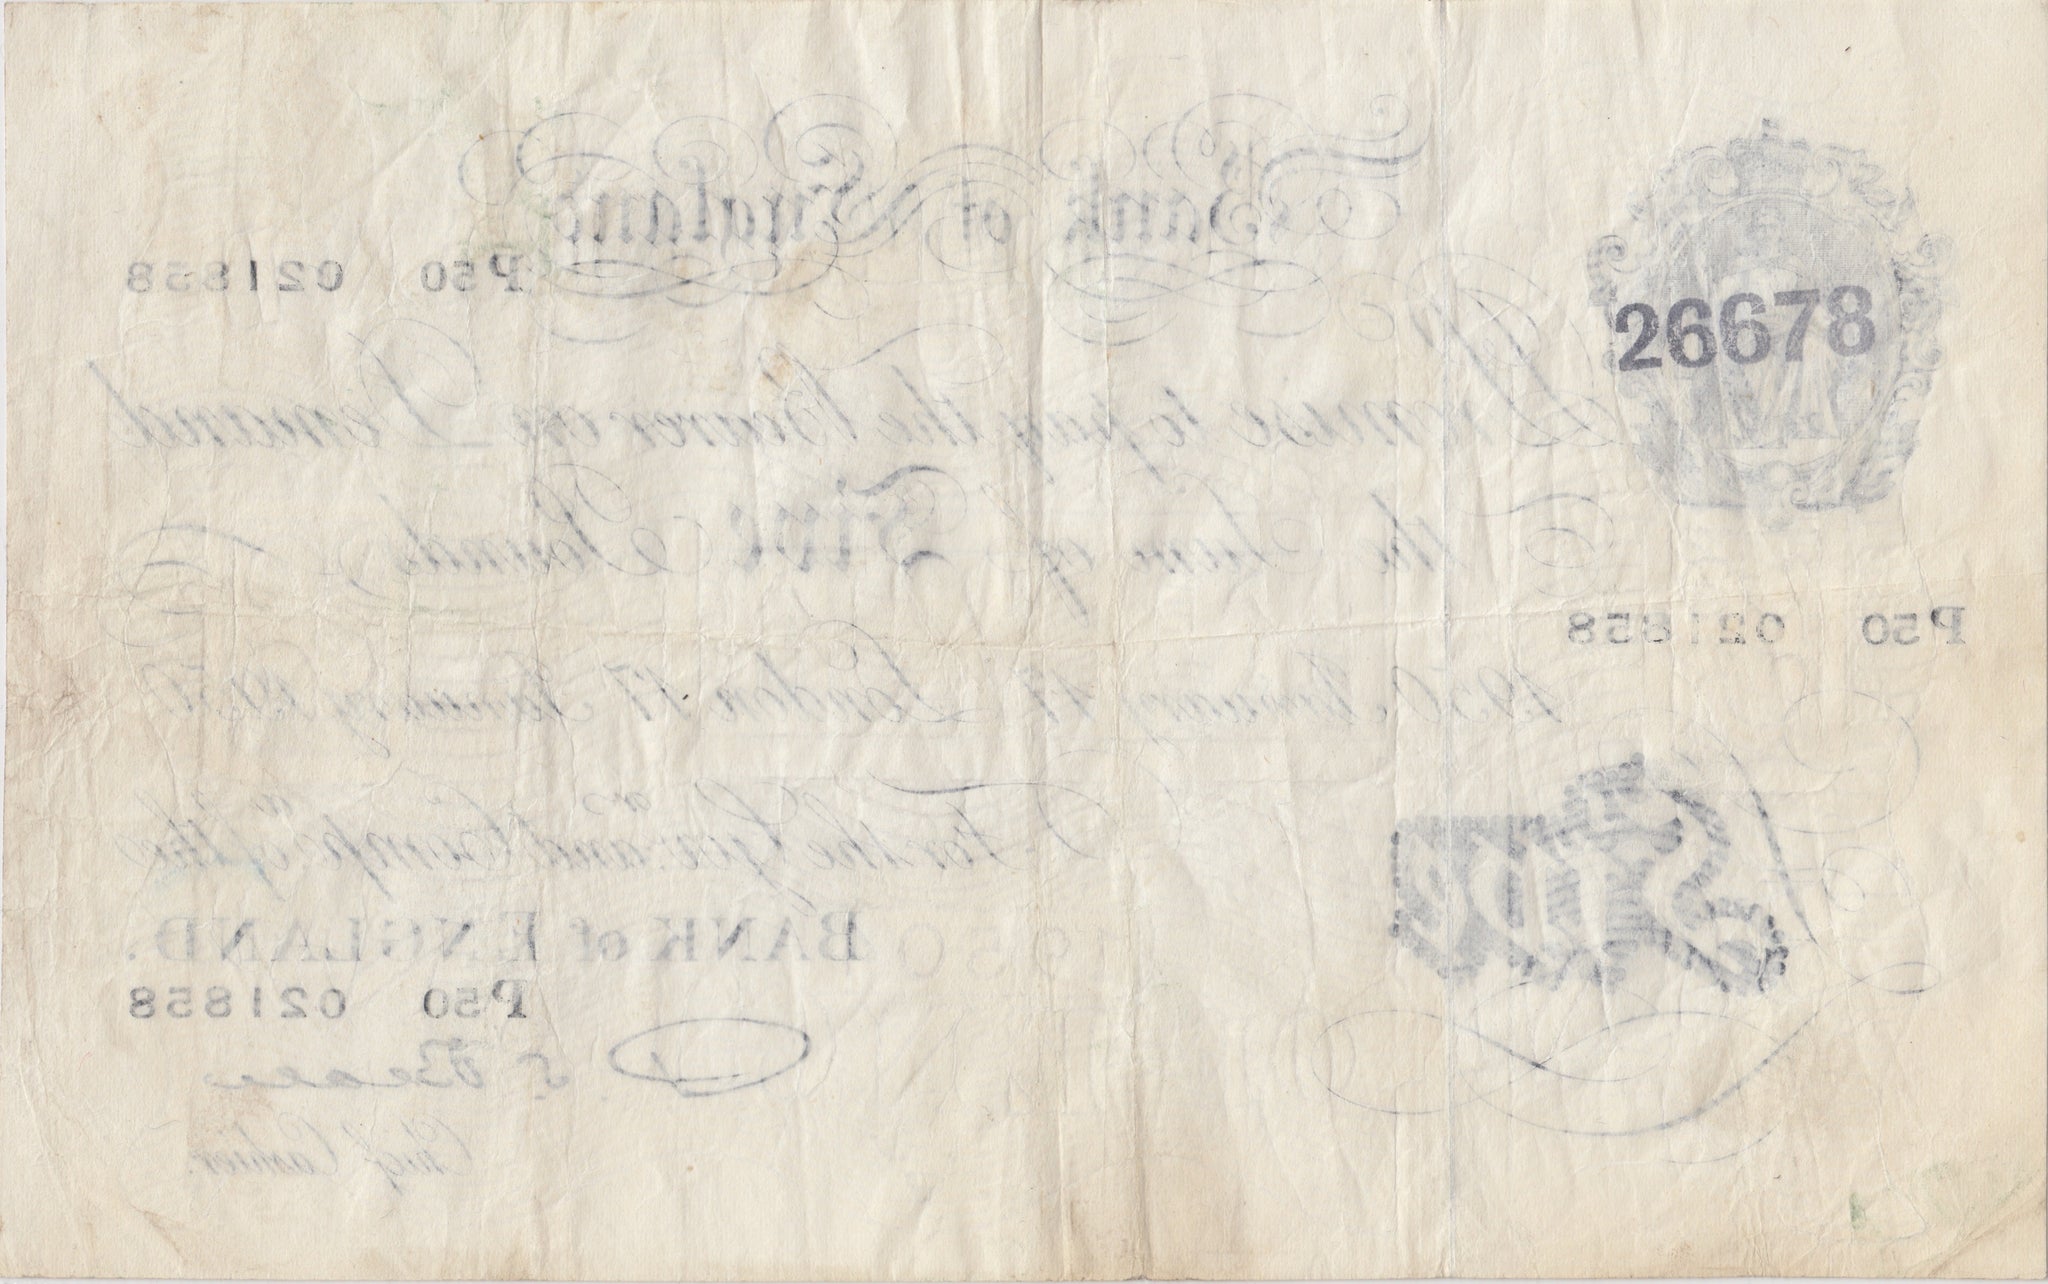 Bank of England
P50 021858
26678
I Promise to pay the Bearer on Demand
the Sum of Five Pounds
P50 021858
1950 January 17 London 17 January 1950
For the Gov.r and Comp.a of the
BANK of ENGLAND.
Five
P50 021858
P S Beale
Chief Cashier.